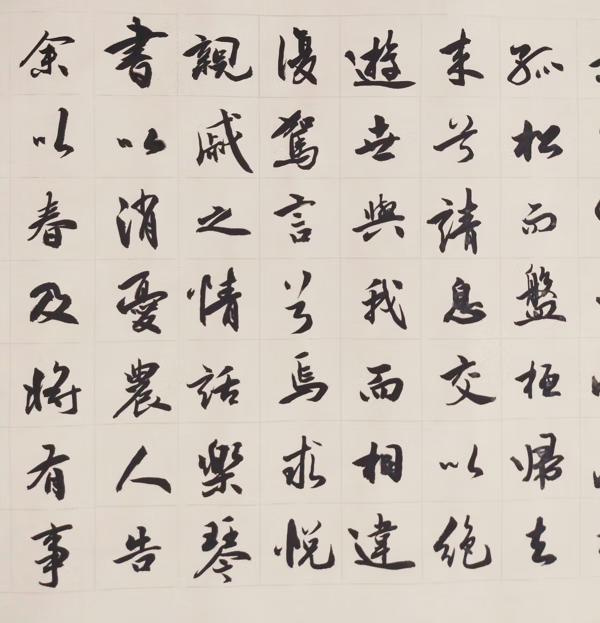 孤松而盤桓歸去
来兮請息交以絶
遊世與我而相違
復駕言兮焉求悅
親戚之情話樂琴
書以消憂農人告
余以春及將有事